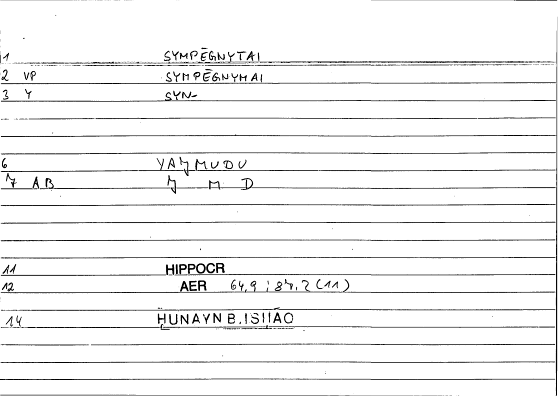 1 SYMPĒGNYTAI
2 VP SYMPĒGNYMAI
3 Y SYN-
6 YAJMUDU
7 AB J M D
11 HIPPOCR
12 AER 64,9 ; (11)
14 ḤUNAYN B. ISḤĀQ